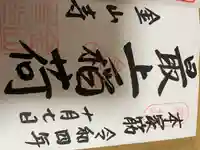 本家
令和四年
十月七日
最上稲荷
金山寺